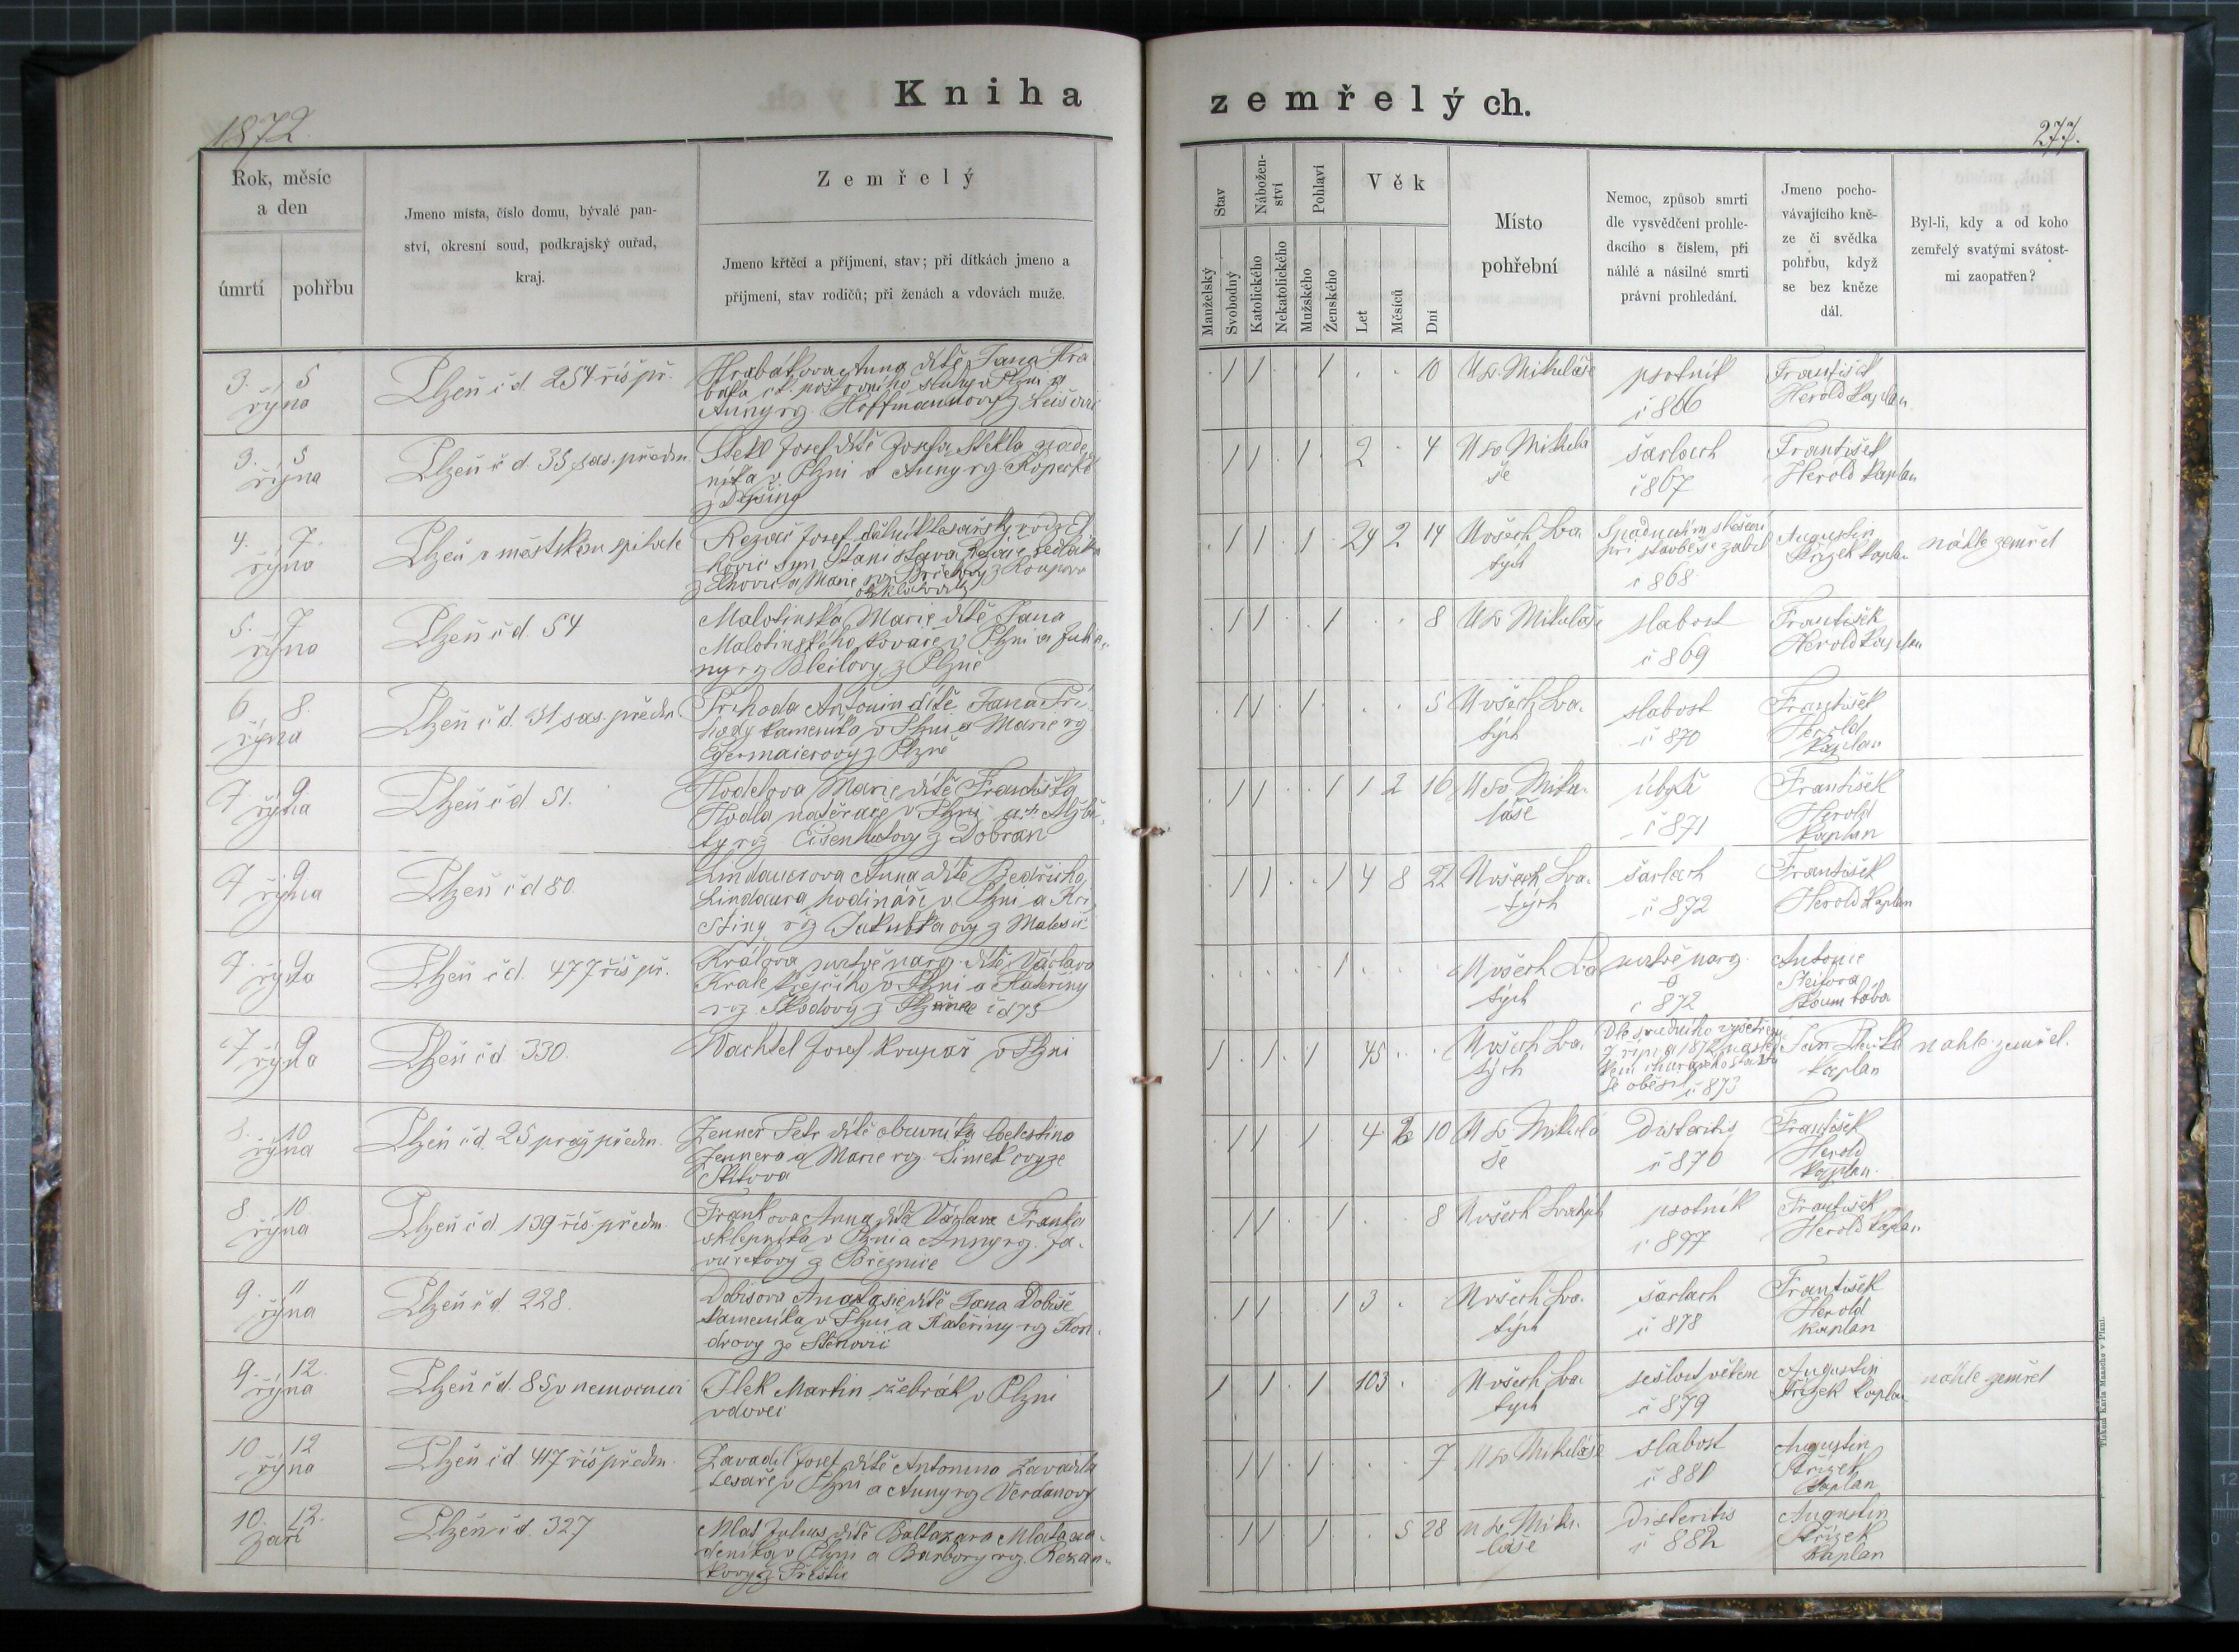 Kniha
zemřelých.
1872.
277.
Rok, měsíc
a den
úmrtí
pohřbu
Jmeno místa, číslo domu, bývalé pan-
ství, okresní soud, podkrajský ouřad,
kraj.
Zemřelý
Jmeno křtěcí a příjmení, stav; při dítkách jmeno a
příjmení, stav rodičů; při ženách a vdovách muže.
Stav
Manželský
Svobodný
Nábožen-
ství
Katolického
Nekatolického
Pohlaví
Mužského
Ženského
Věk
Let
Měsíců
Dní
Místo
pohřební
Nemoc, způsob smrti
dle vysvědčení prohle-
dacího s číslem, při
náhlé a násilné smrti
právní prohledání.
Jmeno pocho-
vávajícího kně-
ze či svědka
pohřbu, když
se bez kněze
dál.
Byl-li, kdy a od koho
zemřelý svatými svátost-
mi zaopatřen?
3. 5
října
Plzeň čd. 254 říš př.
Hrabákova Anna dítě Jana Hra
báka ck. poštovního sluhy v Plzni a
Anny rz. Hoffmannovy z
1 1 1 . . 10
U sv. Mikuláše
psotník
č 866
František
Herold kaplan
3. 5
října
Plzeň č d. 35 sas. předm.
Stekl Josef dítě Josefa Stekla zade
níka v Plzni a Anny rz. Kopecké
z
1 1 1 2 . 4
U sv Mikulá
še
šarlach
č 867
František
Herold kaplan
4. 7.
října
Plzeň v městském špitale
Řezáč Josef dělník tesařský rodz
syn Stanislava Řezáče sedláka
a Marie rz.
1 1 1 24 2 14
U všech Sva
tých
Spadnutím s lešení
při stavbě se zabil
č 868
Augustin
Střízek kaplan
náhle zemřel
5. 7
října
Plzeň čd. 54
Malotinska Marie dítě Jana
Malotinského kováře v Plzni a Julia-
ny rz Bleilovy z Plzně
1 1 1 . . 8
U sv Mikuláše
slabost
č 869
František
Herold kaplan
6 8.
října
Plzeň čd. 31 sas. předm.
Příhoda Antonín dítě Jana Pří
hody kameníka v Plzni a Marie rz
Egermaierovy z Plzně
1 1 1 . . 5
U všech Sva.
tých
slabost
č 870
František
Herold
kaplan
7 9
října
Plzeň č d 51.
Hodlova Marie dítě Františka
Hodla natěrače v Plzni a Alžbě-
ty rz Eisenhutovy z Dobřan
1 1 1 1 2 16
U sv. Miku-
láše
úbytě
č 871
František
Herold
kaplan
7 9
října
Plzeň č d 80.
Lindauerova Anna dítě Bedřicha
Lindaura hodináře v Plzni a Kri
stiny rz Jakubka ovy z Malesic
1 1 1 4 8 22
U všech Sva-
tých
šarlach
č 872
František
Herold kaplan
7 9
října
Plzeň č d. 477 říš př.
Králova mrtvě narz. dítě Václava
Krále krejčího v Plzni a Kateřiny
rz. Škodovy z Plzence č d 75
1
U všech Sva
tých
mrtvě narz.
č 872
Antonie
Steifova
zkoum bába
7 9
října
Plzeň čd. 330.
Wachtel Josef krupař v Plzni
1 1 1 45 . .
U všech Sva.
tých
Dle soudního vyšetření
7 října 1872
se oběsil č 873
Jan
kaplan
náhle zemřel.
8. 10
října
Plzeň čd. 25 praž předm.
Zenner Petr dítě obuvníka Celestina
Zennera a Marie rz. Šimek ovy ze
Štítova
1 1 1 4 6 10
U sv. Mikulá
še
Disteritis
č 876
František
Herold
kaplan.
8. 10
října
Plzeň č d 139 říš. předm.
Frankova Anna dítě Václava Franka
sklepníka v Plzni a Anny rz. Ja-
vurkovy z Březnice
1 1 1 . . 8
U všech Svatých
psotník
č 877
František
Herold kaplan
9. 11
října
Plzeň č d. 228.
Dobišova Anastasie dítě Jana Dobiše
kameníka v Plzni a Kateřiny rz Kon-
drovy ze Štěnovic
1 1 1 3 .
U všech Sva.
tých
šarlach
č 878
František
Herold
kaplan
9. 12.
října
Plzeň čd. 85 v nemocnici
Ilek Martin žebrák v Plzni
vdovec
1 1 1 103 .
U všech Sva-
tých
sešlost věkem
č 879
Augustin
Střízek kaplan
náhle zemřel
10 12
října
Plzeň č d 417 říš předm.
Zavadil Josef dítě Antonína Zavadila
tesaře v Plzni a Anny rz Verdanovy
1 1 1 . . 7
U sv Mikuláše
slabost
č 881
Augustin
Střízek
kaplan
10. 12.
září
Plzeň č d. 327
Mlat Julius dítě Baltazara Mlata za-
deníka v Plzni a Barbory rz. Řezan-
kovy z Přeštic
1 1 1 . 5 28
U sv. Miku-
láše
Disteritis
č 882
Augustin
Střízek
kaplan
Tiskem Karla Maascha v Plzni.